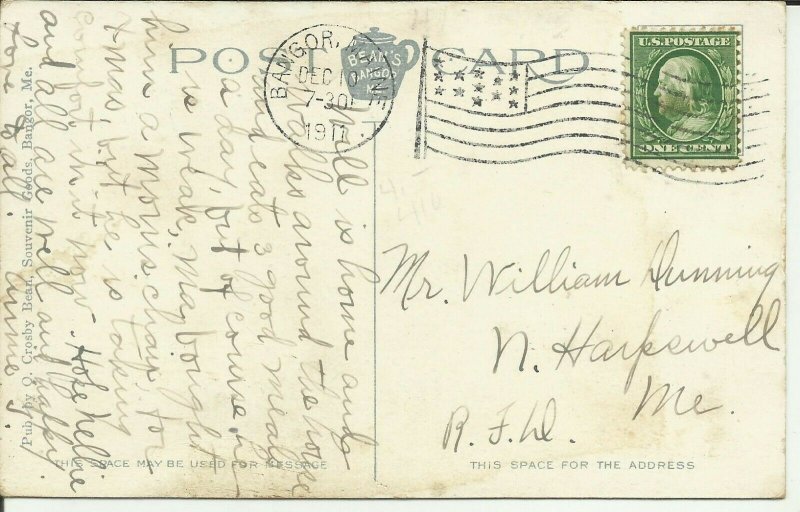 POST CARD
BEAN'S
BANGOR
ME
BANGOR, MAINE
DEC 1
7-30P
1911
U.S. POSTAGE
ONE CENT
Will is home and
walks around the house
and eats 3 good meals
a day, but of course, is
is weak, May bought
him a Morris chair for
Xmas, but he is taking
comfort in it now. Hope Nellie
and all are well and happy.
Love to all. Annie S.
Mr. William Dunning
N. Harpswell
Me.
R. F. D.
THIS SPACE MAY BE USED FOR MESSAGE
THIS SPACE FOR THE ADDRESS
Pub. by O. Crosby Bean, Souvenir Goods, Bangor, Me.